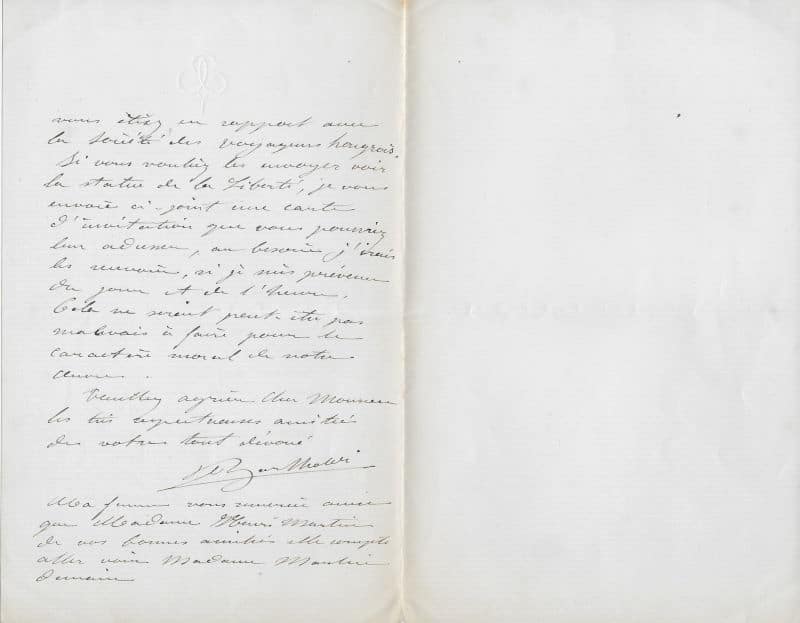 vous étiez en rapport avec
la Société des voyageurs hongrois.
Si vous vouliez les envoyer voir
la statue de la Liberté, je vous
envoie ci-joint une carte
d'invitation que vous pourriez
leur adresser, au besoin j'irais
les recevoir, si je suis prévenu
du jour et de l'heure.
Cela ne serait peut-être pas
mauvais à faire pour le
caractère moral de notre
œuvre.
Veuillez agréer cher Monsieur
les très respectueuses amitiés
des votres tout dévoué
Bartholdi
Ma femme vous remercie ainsi
que Madame Henri Martin
de vos bonnes amitiés elle compte
aller voir Madame Martin
demain